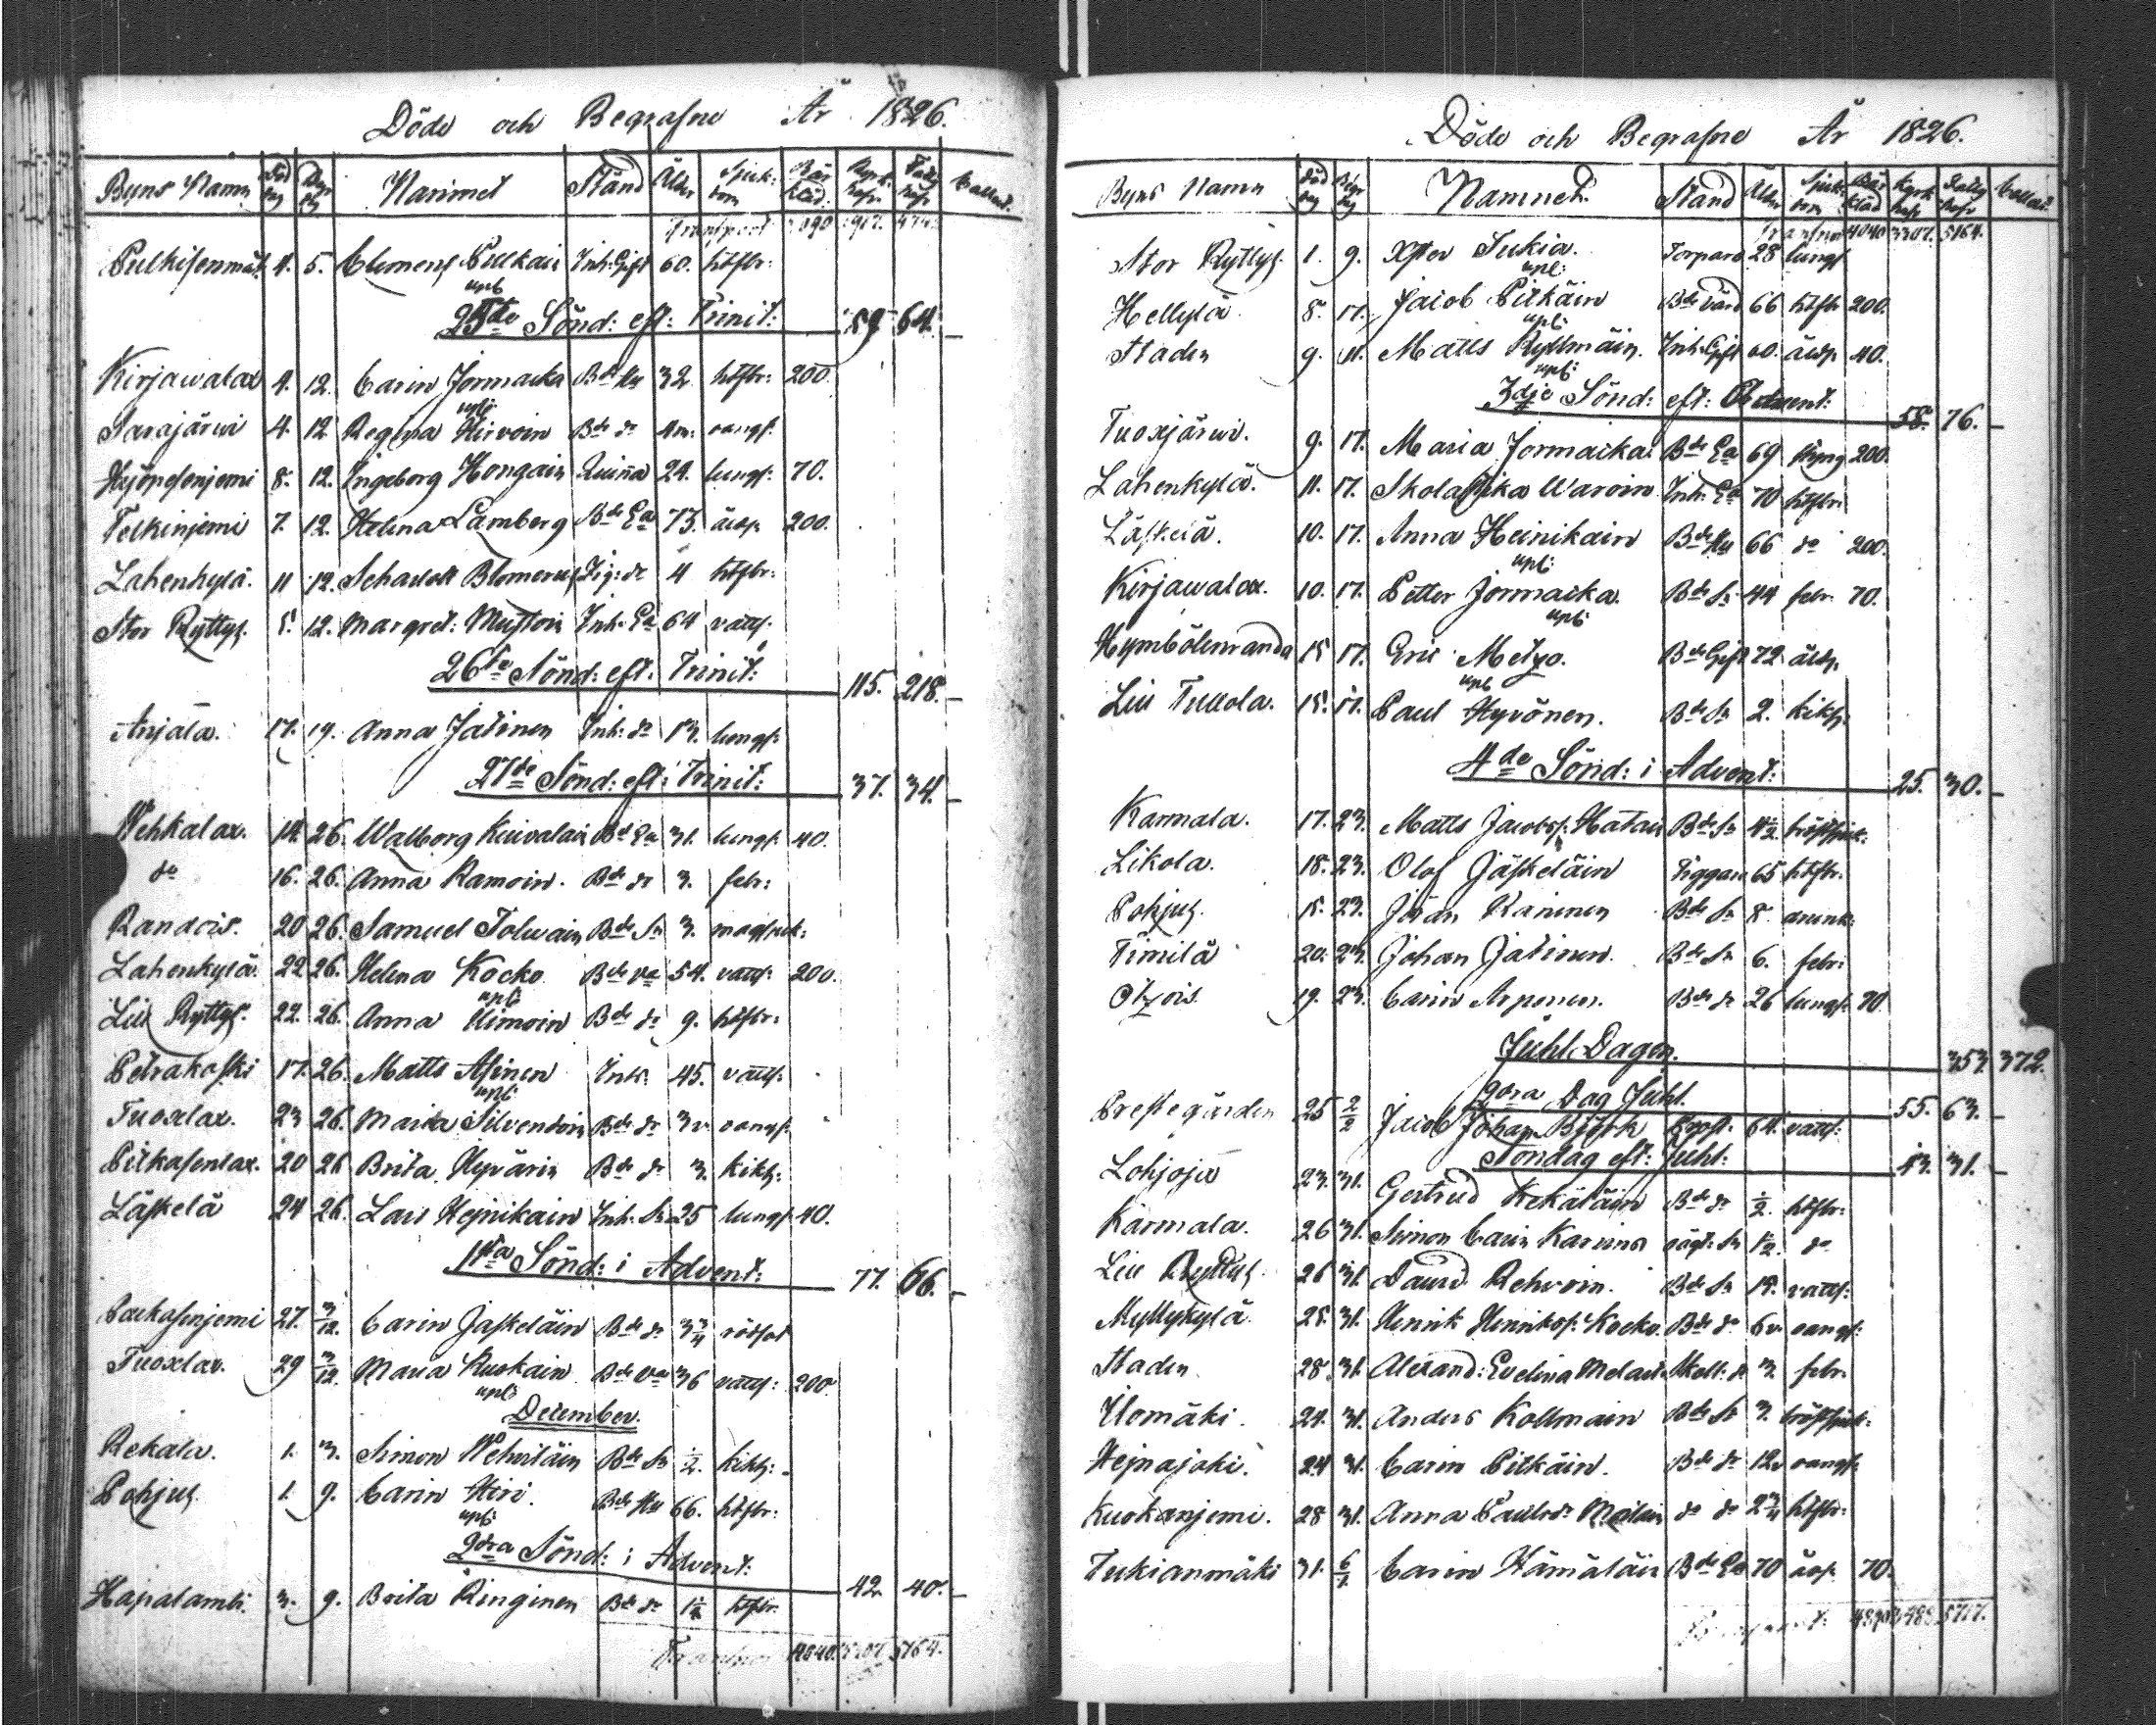 Döde och Begrafne År 1826.
Byns Namn Död dag Begr dag Namnet Stånd Ålder Sjuk: dom Bår kläd. Kyrk: håfv. Fattig håfv. Collect.
Transport 917.
Pulkisenmäk. 4. 5. Clemens Pulkain Inh. Gift 60. håftbr:
upb
25te Sönd: eft: Trinit: 89 64.
Kirjawalax 4. 12. Carin Jormacka Bde Hu 32 håftbr: 200.
upb:
Sarajärwi 4. 12 Regina Hirvoin Bde dr 4m. oangf.
Hyöpesenjemi 8. 12. Ingeborg Hongain Quiña 24. lungs: 70.
Telkinjemi 7. 12. Helena Lamberg Bde Ea 73. åldr. 200.
Lahenkylä. 11 12. Scharlott Blomerus Zig: dr 4 håftbr:
Stor Ryttys. 8. 12. Margret: Muston Inh. Ea 64 vatts:
26te Sönd: eft: Trinit: 115. 218.
Anjala. 17. 19. Anna Jatinen Inh. dr 13. lungs:
27de Sönd: eft: Trinit: 37. 34.
Wehkalax. 14. 26. Walborg Kuivalain Bde Ea 31. lungs: 40.
do 16. 26. Anna Ramoin. Bde dr 3. febr:
Randois. 20 26. Samuel Tolwain Bde Sn 3. magsjuk:
Lahenkylä. 22 26. Helena Kocko Bde Ea 54. vatts: 200.
upb:
Lill Ryttys. 22. 26. Anna Himoin Bde dr 9. håftbr:
Petrakoski 17. 26. Matts Asinen Inh. 45. vatts:
upb:
Tuoxlax. 23 26. Maria Silvendoin Bde dr 3v oangf.
Pitkasenlax. 20 26 Brita Hyvärin Bde dr 3. kikh:
Läskelä 24 26. Lars Heinikain Inh. Sn 25 lungs: 40.
1sta Sönd: i Advent: 77. 66.
Packasenjemi 27. 3/12. Carin Jaskeläin Bde dr 3 3/4 rödsot
Tuoxlax. 29 3/12. Maria Ruokain Bde Ea 36 vatts: 200
upb:
December.
Rekala. 1. 3. Simon Wehviläin Bde Sn 1/2. kikh:
Pohjus. 1. 9. Carin Hiri. Bde Hu 66. håftbr:
upb:
2dra Sönd: i Advent: 42 40.
Hapalambi. 3. 9. Brita Ringinen Bde dr 1 1/2 håftbr.
Transport 4040. 3307 5164.
Döde och Begrafne År 1826.
Byns Namn Död dag Begr dag Namnet. Stånd Ålder Sjuk: dom Bår kläd Kyrk håfv Fattig håfv Collect.
Transport 4040 3307. 5164.
Stor Ryttys. 1. 9. Xster Sukia. Torpare 28 lungs
upb:
Hellylä. 8. 17. Jacob Pitkäin Bde värd 66 håftbr 200.
upb:
Staden 9. 11. Matts Ryllmäin. Inh. Gift 60. åldr. 40.
upb:
3dje Sönd: eft: Advent: 58. 76.
Tuoxjärwi. 9. 17. Maria Jormacka Bde Ea 69 200.
Lahenkylä. 11. 17. Skolastika Waroin Inh. Ea 70 håftbr:
Läskelä. 10. 17. Anna Heinikain Bde Hu 66 do 200.
upb:
Kirjawalax. 10. 17. Petter Jormacka. Bde Sn 44 febr. 70.
upb:
Hymbölenranda 15 17. Eric Metzo. Bde Gift 72 åldr.
upb
Lill Tullola. 15. 17. Paul Hyvönen. Bde Sn 2. kikh:
4de Sönd: i Advent: 25. 30.
Karmala. 17. 23. Matts Jacobs: Hatain Bde Sn 4 1/2 bröstsjuk:
Likola. 18. 23. Olof Jäskeläin Tiggare 65 håftbr.
Pohjus. 15. 23. Jöran Kaninen Bde Sn 8.
Fimilä 20. 23. Johan Jatinen. Bde Sn 6. febr:
Otzois 19. 23. Carin Arponen. Bde dr 26 lungs: 70.
Juhl Dagen. 353 372.
2dra Dag Juhl. 55. 63.
Prestegården 25 2/2 Jacob Johan Björk Prost. 64. vatts:
Söndag eft: Juhl: 13. 31.
Lohjoja 23. 31. Gertrud Kekäläin Bde dr 1/2. håftbr:
Karmala. 26 31. Simon Carin Karina oägt: Sn 1 1/2. do
Lill Ryttys. 26 31. David Rehvoin. Bde Sn 15. vatts:
Myllykylä 25. 31. Henrik Henriks: Kocko. Bde dr 6v oangf:
Staden 28. 31. Alexand: Evelina Melart dr 3. febr.
Ilomäki. 24. 31. Anders Kollmain Bde Sn 3. bröstsjuk:
Hejnajoki. 24 31. Carin Pitkäin. Bde dr 12v oangf:
Kuokanjemi. 28 31. Anna Paulsdr Matlain do dr 2 3/4 håftbr:
Tukianmäki 31. 6/1. Carin Hämäläin Bde Ea 70 åldr. 70.
Transport: 5717.